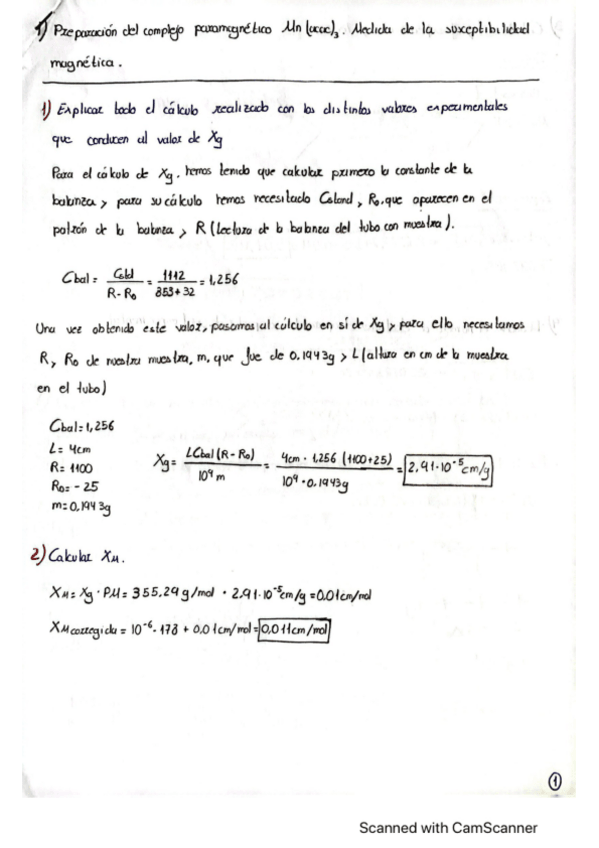 1) Preparación del complejo paramagnético Mn(acac)3. Medida de la susceptibilidad
magnética.
1) Explicar todo el cálculo realizado con los distintos valores experimentales
que conducen al valor de Xg
Para el cálculo de Xg, hemos tenido que calcular primero la constante de la
balanza y para su cálculo hemos necesitado Cstand, R0, que aparecen en el
patrón de la balanza y R (Lectura de la balanza del tubo con muestra).
Cbal = Cstd / R-R0 = 1112 / 853+32 = 1,256
Una vez obtenido este valor, pasamos al cálculo en sí de Xg y para ello necesitamos
R, R0 de nuestra muestra, m, que fue de 0.1943g y L (altura en cm de la muestra
en el tubo)
Cbal = 1,256
L = 4cm
R = 1100
R0 = - 25
m = 0,1943g
Xg = LCbal(R-R0) / 10^9 m = 4cm · 1,256 (1100+25) / 10^9 · 0,1943g = 2,91·10^-5 cm/g
2) Calcular XM.
XM = Xg · PM = 355.29 g/mol · 2,91·10^-5 cm/g = 0,01 cm/mol
XM corregida = 10^-6 · 178 + 0,01 cm/mol = 0,011 cm/mol
1
Scanned with CamScanner